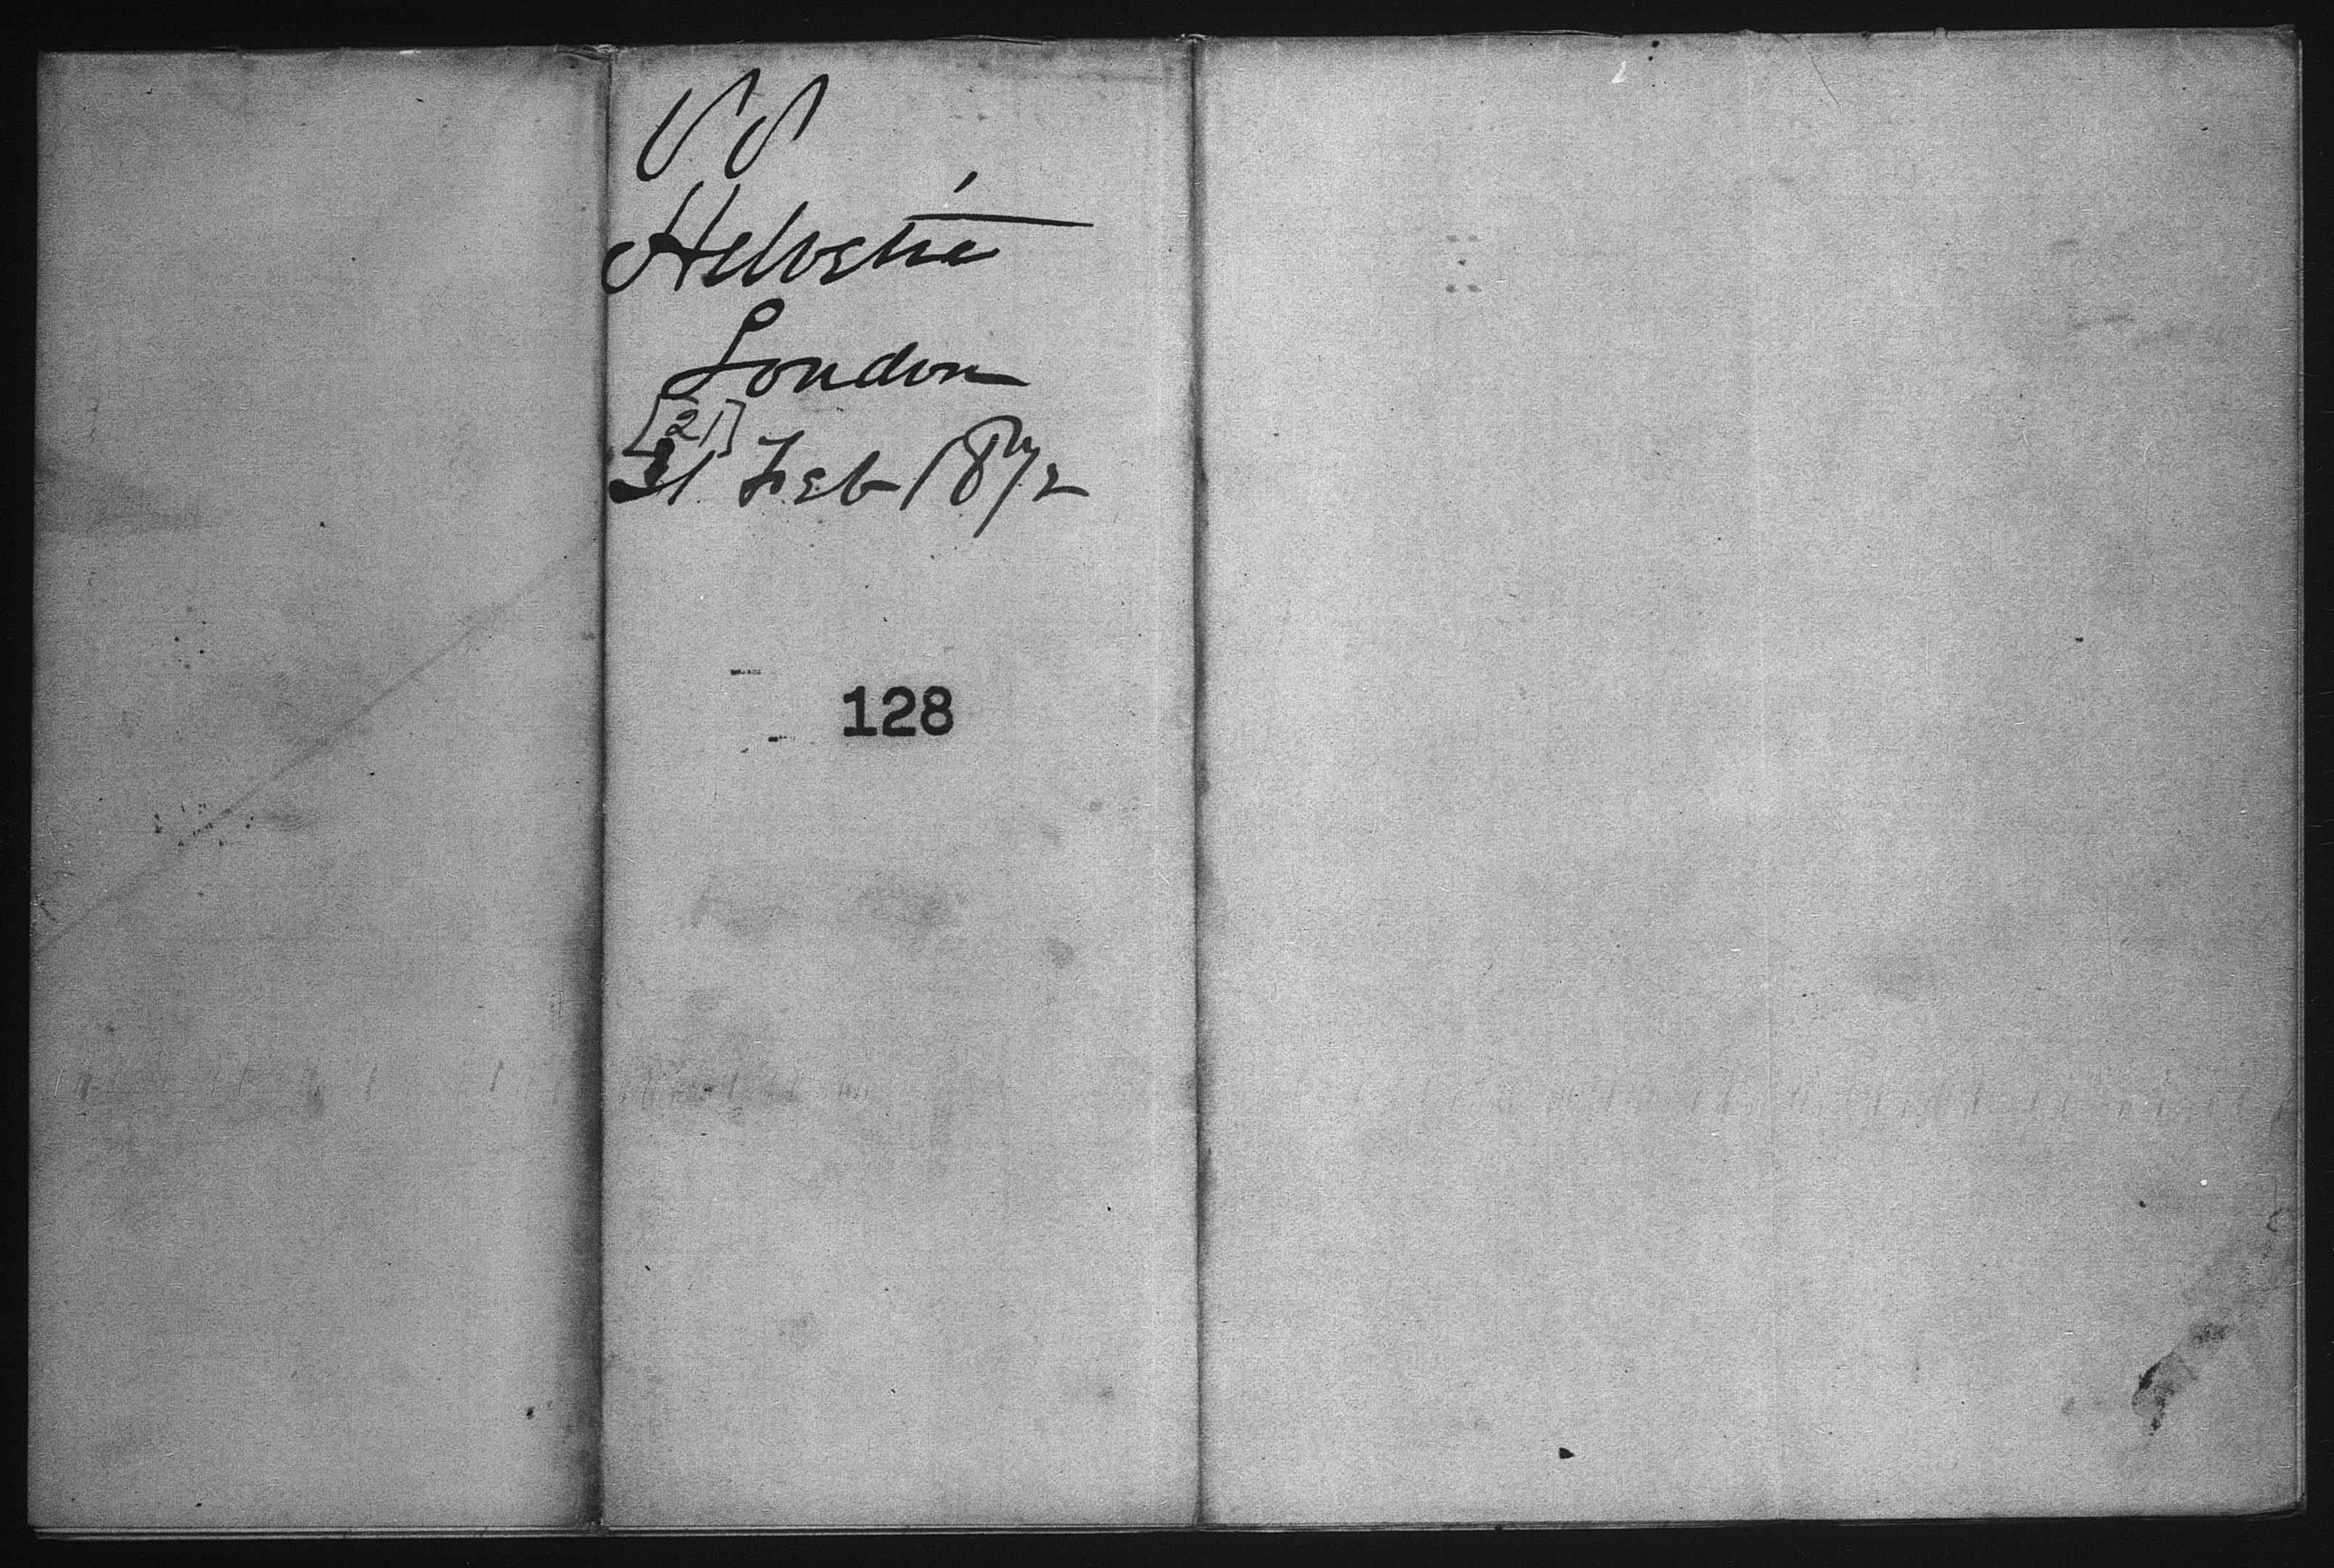 SS
Helvetia
London
[21]
21 Feb 1872
128